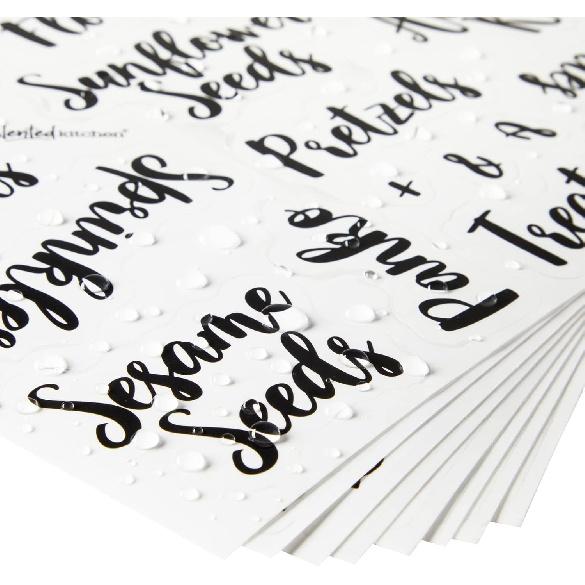 Sunflower
Seeds
Pretzels
+ & A
kitchen®
Sprinkles
Panko
Treat
Sesame
Seeds